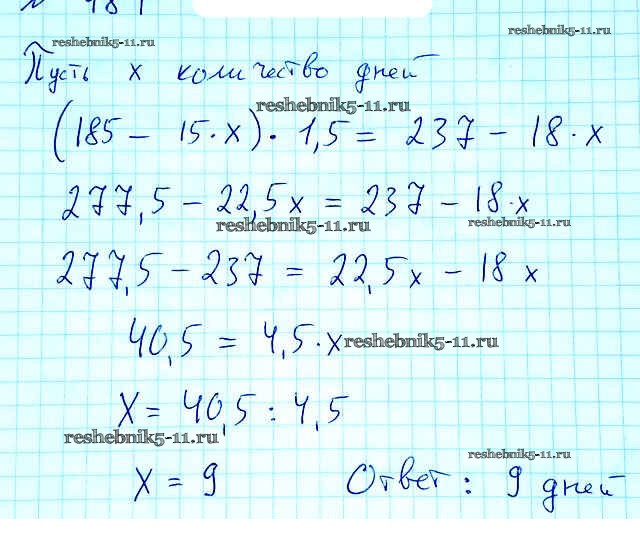 reshebnik5-11.ru
reshebnik5-11.ru
Пусть x количество дней
reshebnik5-11.ru
(185 - 15·x)·1,5 = 237 - 18·x
277,5 - 22,5x = 237 - 18·x
reshebnik5-11.ru
reshebnik5-11.ru
277,5 - 237 = 22,5x - 18x
40,5 = 4,5·x
reshebnik5-11.ru
X = 40,5 : 4,5
reshebnik5-11.ru
reshebnik5-11.ru
X = 9 Ответ: 9 дней